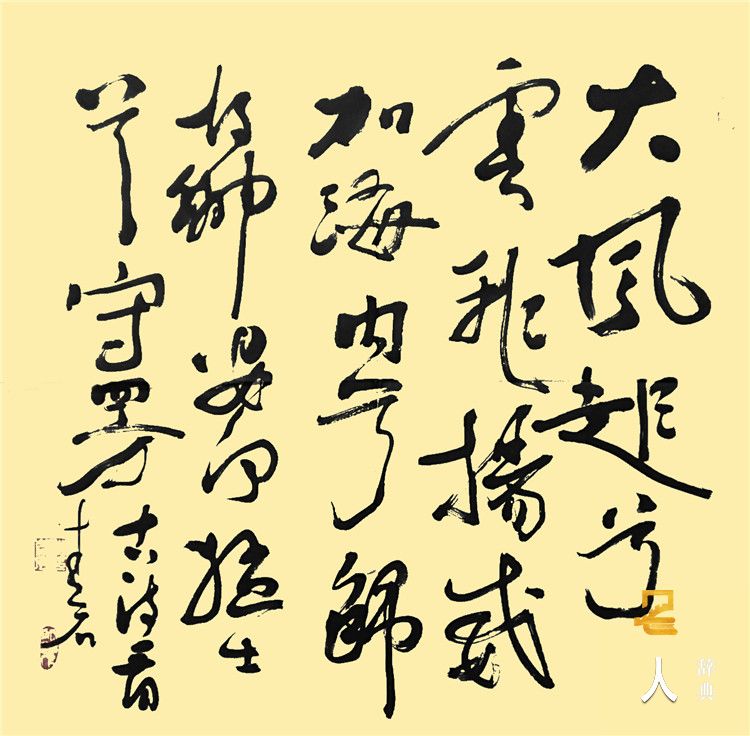 大風起兮
雲飛揚威
加海内兮歸
故鄉安得猛士
兮守四方
古詩一首
名人
辞典